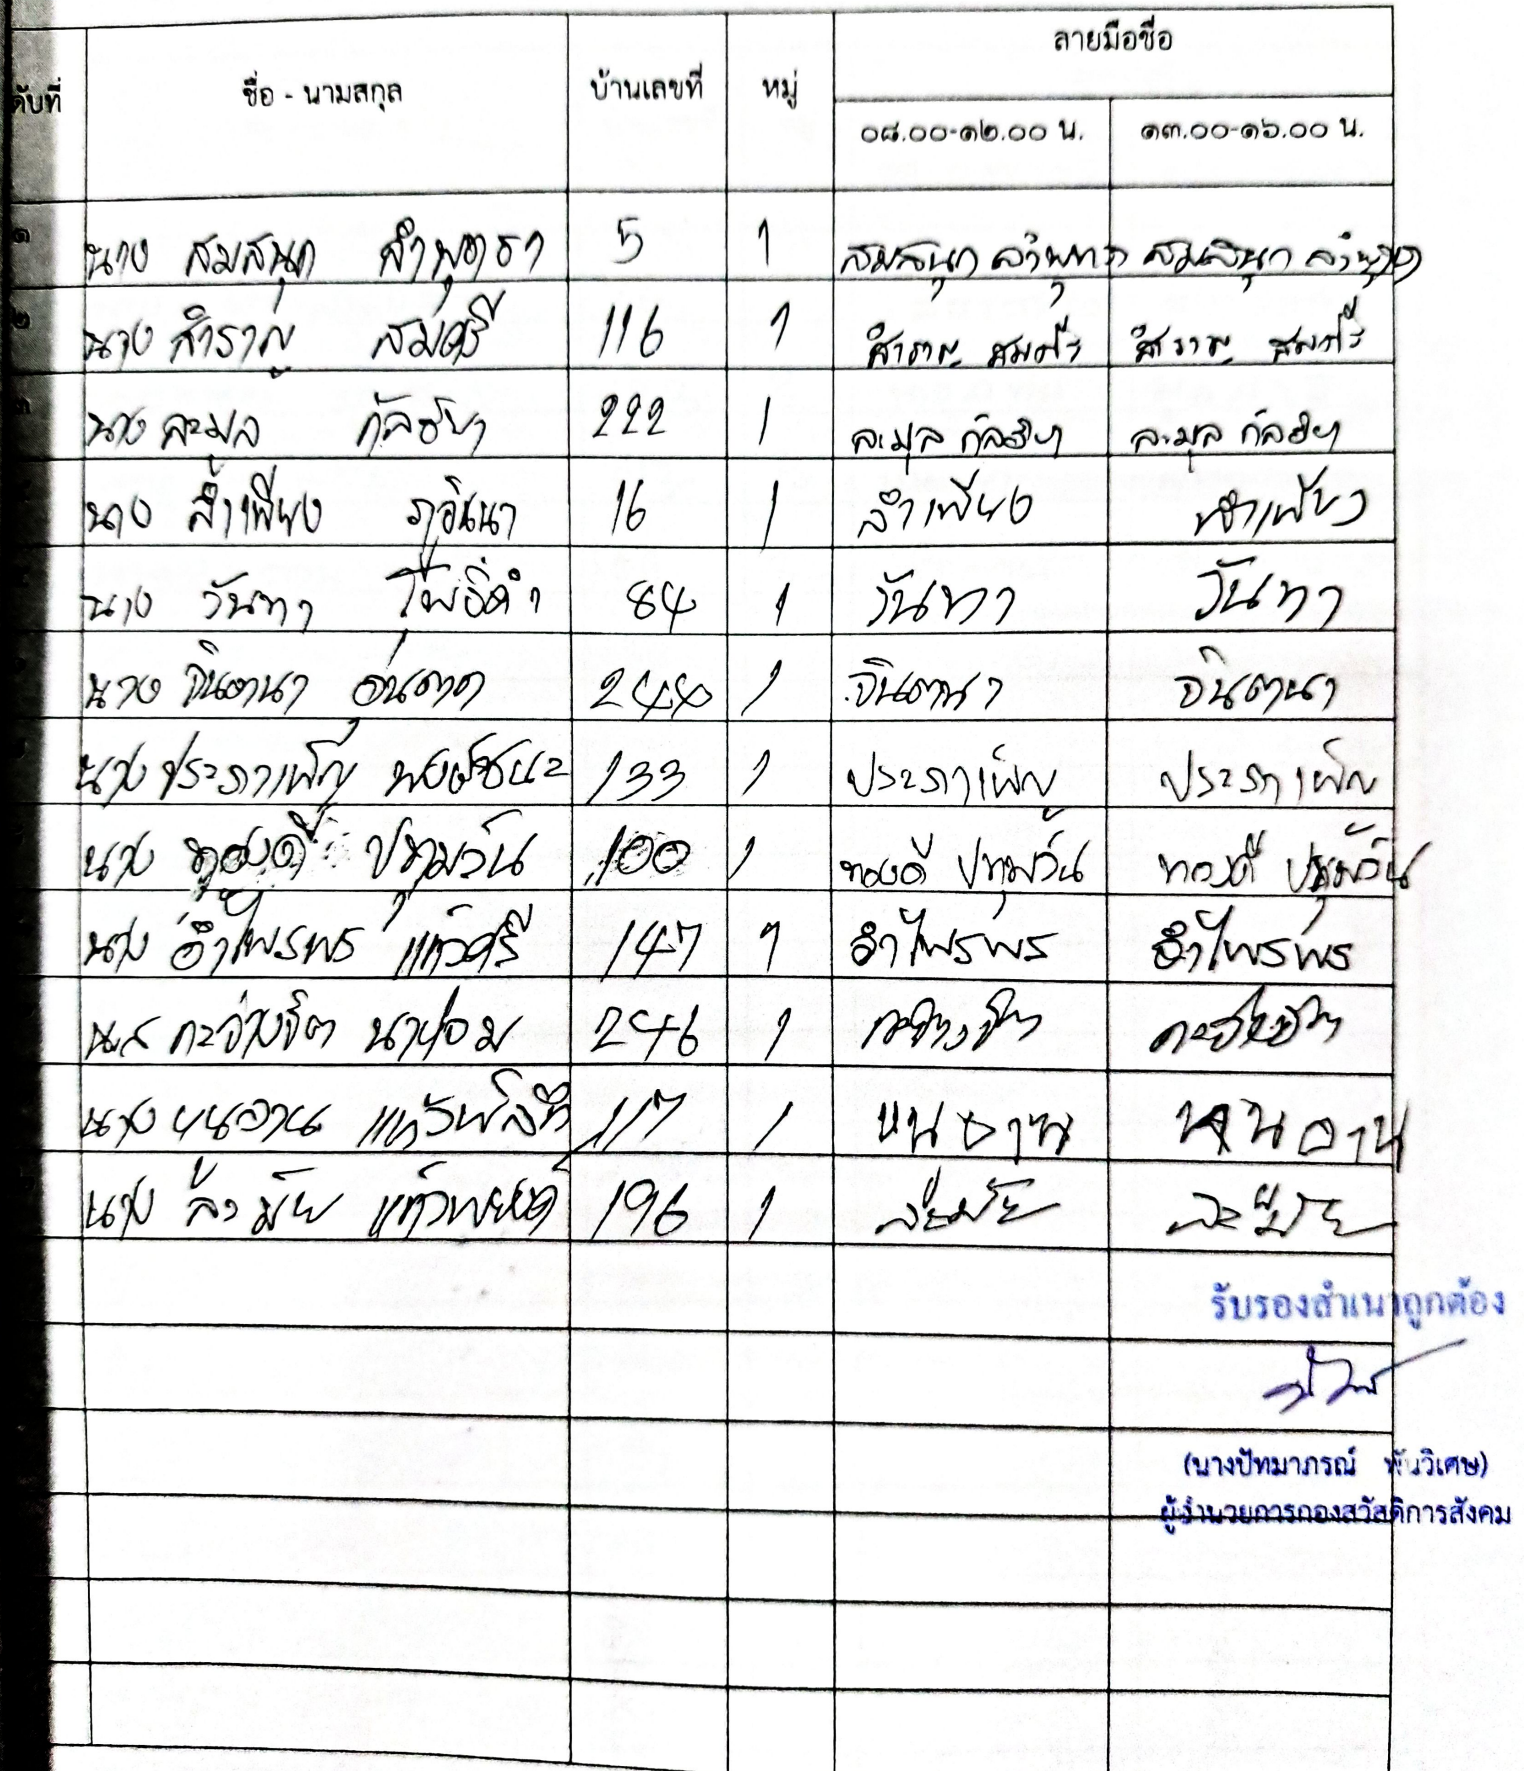 ลายมือชื่อ
ดับที่ ชื่อ - นามสกุล บ้านเลขที่ หมู่
๐๘.๐๐-๑๒.๐๐ น. ๑๓.๐๐-๑๖.๐๐ น.
๑ นาง สมสนุก ลำพุทธา 5 1 สมสนุก ลำพุทธา สมสนุก ลำพุทธา
๒ นาง สำราญ สมศรี 116 1 สำราญ สมศรี สำราญ สมศรี
๓ นาง ละมุล กัลยา 222 1 ละมุล กัลยา ละมุล กัลยา
นาง ลำเพียง 16 1 ลำเพียง ลำเพียง
นาง วันทา โพธิ์คำ 84 1 วันทา วันทา
นาง จินตนา อุ่นตาด 244 1 จินตนา จินตนา
นาง ประภาเพ็ญ 133 1 ประภาเพ็ญ ประภาเพ็ญ
นาง ทองดี ปทุมวัน 100 1 ทองดี ปทุมวัน ทองดี ปทุมวัน
นาง อำไพรพร แก้วศรี 147 1 อำไพรพร อำไพรพร
นส กะจ่างจิต 246 1
นาง 117 1
นาง 196 1
รับรองสำเนาถูกต้อง
(นางปัทมาภรณ์ พันวิเศษ)
ผู้อำนวยการกองสวัสดิการสังคม